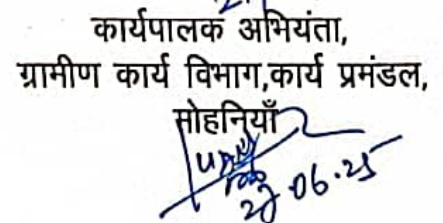 कार्यपालक अभियंता,
ग्रामीण कार्य विभाग,कार्य प्रमंडल,
मोहनियाँ
27.06.25